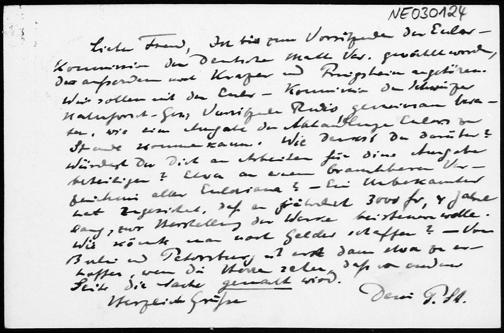 NE030124
Lieber Freund, Ich bin zum Vorsitzenden der Euler-
Kommission der Deutschen Math. Ver. gewählt worden,
der ausserdem noch Krazer und Pringsheim angehören.
Wir sollen mit der Euler-Kommission der Schweizer
Naturforsch. Ges., Vorsitzender Rudio, gemeinsam bera-
ten, wie eine Ausgabe der Abhandlungen Eulers zu
Stande kommen kann. Wie denkst Du darüber?
Würdest Du Dich an Arbeiten für diese Ausgabe
beteiligen? Etwa an einem brauchbaren Ver-
zeichnis aller Euleriana? – Ein Unbekannter
hat zugesichert, daß er jährlich 3000 fr, 4 Jahre
lang, zur Herstellung der Werke beisteuern wolle.
Wie könnte man noch Gelder schaffen? – Von
Berlin und Petersburg ist erst dann etwa zu er-
hoffen, wenn die Herren sehen, daß von andrer
Seite die Sache gemacht wird.
Herzliche Grüße
Dein P. St.